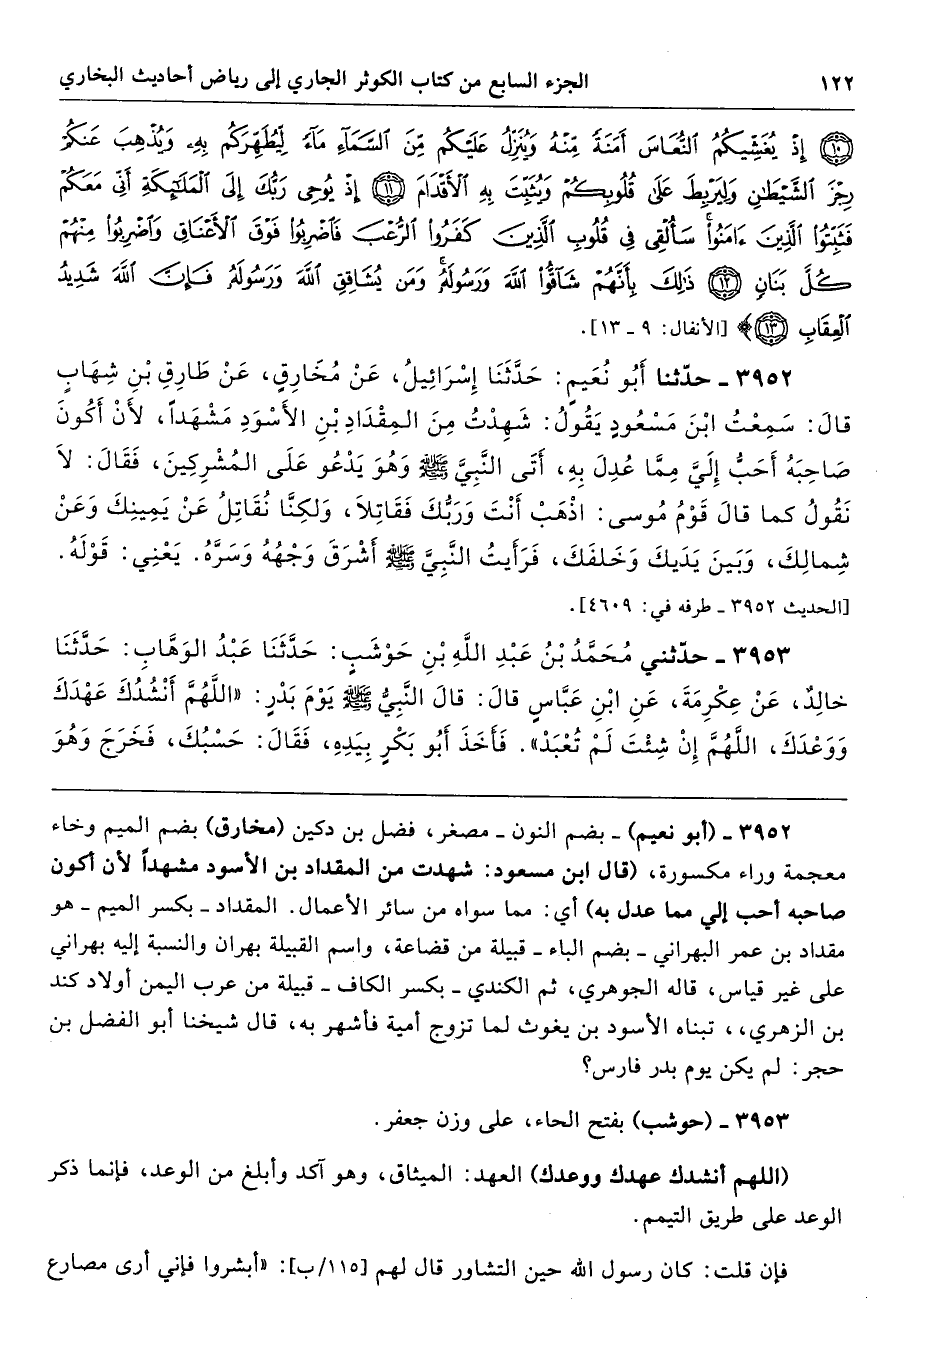 ١٢٢ الجزء السابع من كتاب الكوثر الجاري إلى رياض أحاديث البخاري
١٠ إِذْ يُغَشِّيكُمُ ٱلنُّعَاسَ أَمَنَةً مِّنْهُ وَيُنَزِّلُ عَلَيْكُم مِّنَ ٱلسَّمَآءِ مَآءً لِّيُطَهِّرَكُم بِهِۦ وَيُذْهِبَ عَنكُمْ
رِجْزَ ٱلشَّيْطَٰنِ وَلِيَرْبِطَ عَلَىٰ قُلُوبِكُمْ وَيُثَبِّتَ بِهِ ٱلْأَقْدَامَ ١١ إِذْ يُوحِى رَبُّكَ إِلَى ٱلْمَلَٰٓئِكَةِ أَنِّى مَعَكُمْ
فَثَبِّتُوا۟ ٱلَّذِينَ ءَامَنُوا۟ۚ سَأُلْقِى فِى قُلُوبِ ٱلَّذِينَ كَفَرُوا۟ ٱلرُّعْبَ فَٱضْرِبُوا۟ فَوْقَ ٱلْأَعْنَاقِ وَٱضْرِبُوا۟ مِنْهُمْ
كُلَّ بَنَانٍ ١٢ ذَٰلِكَ بِأَنَّهُمْ شَآقُّوا۟ ٱللَّهَ وَرَسُولَهُۥۚ وَمَن يُشَاقِقِ ٱللَّهَ وَرَسُولَهُۥ فَإِنَّ ٱللَّهَ شَدِيدُ
ٱلْعِقَابِ ١٣﴾ [الأنفال: ٩ ـ ١٣].
٣٩٥٢ ـ حدّثنا أَبُو نُعَيمٍ: حَدَّثَنَا إِسْرَائِيلُ، عَنْ مُخَارِقٍ، عَنْ طَارِقِ بْنِ شِهَابٍ
قالَ: سَمِعْتُ ابْنَ مَسْعُودٍ يَقُولُ: شَهِدْتُ مِنَ المِقْدَادِ بْنِ الأَسْوَدِ مَشْهَداً، لأَنْ أَكُونَ
صَاحِبَهُ أَحَبُّ إِلَيَّ مِمَّا عُدِلَ بِهِ، أَتَى النَّبِيَّ ﷺ وَهُوَ يَدْعُو عَلَى المُشْرِكِينَ، فَقَالَ: لاَ
نَقُولُ كما قالَ قَوْمُ مُوسى: اذْهَبْ أَنْتَ وَرَبُّكَ فَقَاتِلاَ، وَلكِنَّا نُقَاتِلُ عَنْ يَمِينِكَ وَعَنْ
شِمالِكَ، وَبَينَ يَدَيكَ وَخَلفَكَ، فَرَأَيتُ النَّبِيَّ ﷺ أَشْرَقَ وَجْهُهُ وَسَرَّهُ. يَعْنِي: قَوْلَهُ.
[الحديث ٣٩٥٢ ـ طرفه في: ٤٦٠٩].
٣٩٥٣ ـ حدّثني مُحَمَّدُ بْنُ عَبْدِ اللَّهِ بْنِ حَوْشَبٍ: حَدَّثَنَا عَبْدُ الوَهَّابِ: حَدَّثَنَا
خالِدٌ، عَنْ عِكْرِمَةَ، عَنِ ابْنِ عَبَّاسٍ قالَ: قالَ النَّبِيُّ ﷺ يَوْمَ بَدْرٍ: «اللَّهُمَّ أَنْشُدُكَ عَهْدَكَ
وَوَعْدَكَ، اللَّهُمَّ إِنْ شِئْتَ لَمْ تُعْبَدْ». فَأَخَذَ أَبُو بَكْرٍ بِيَدِهِ، فَقَالَ: حَسْبُكَ، فَخَرَجَ وَهُوَ
٣٩٥٢ ـ (أبو نعيم) ـ بضم النون ـ مصغر، فضل بن دكين (مخارق) بضم الميم وخاء
معجمة وراء مكسورة، (قال ابن مسعود: شهدت من المقداد بن الأسود مشهداً لأن أكون
صاحبه أحب إلي مما عدل به) أي: مما سواه من سائر الأعمال. المقداد ـ بكسر الميم ـ هو
مقداد بن عمر البهراني ـ بضم الباء ـ قبيلة من قضاعة، واسم القبيلة بهران والنسبة إليه بهراني
على غير قياس، قاله الجوهري، ثم الكندي ـ بكسر الكاف ـ قبيلة من عرب اليمن أولاد كند
بن الزهري،، تبناه الأسود بن يغوث لما تزوج أمية فأشهر به، قال شيخنا أبو الفضل بن
حجر: لم يكن يوم بدر فارس؟
٣٩٥٣ ـ (حوشب) بفتح الحاء، على وزن جعفر.
(اللهم أنشدك عهدك ووعدك) العهد: الميثاق، وهو آكد وأبلغ من الوعد، فإنما ذكر
الوعد على طريق التيمم.
فإن قلت: كان رسول الله حين التشاور قال لهم [١١٥/ب]: «أبشروا فإني أرى مصارع